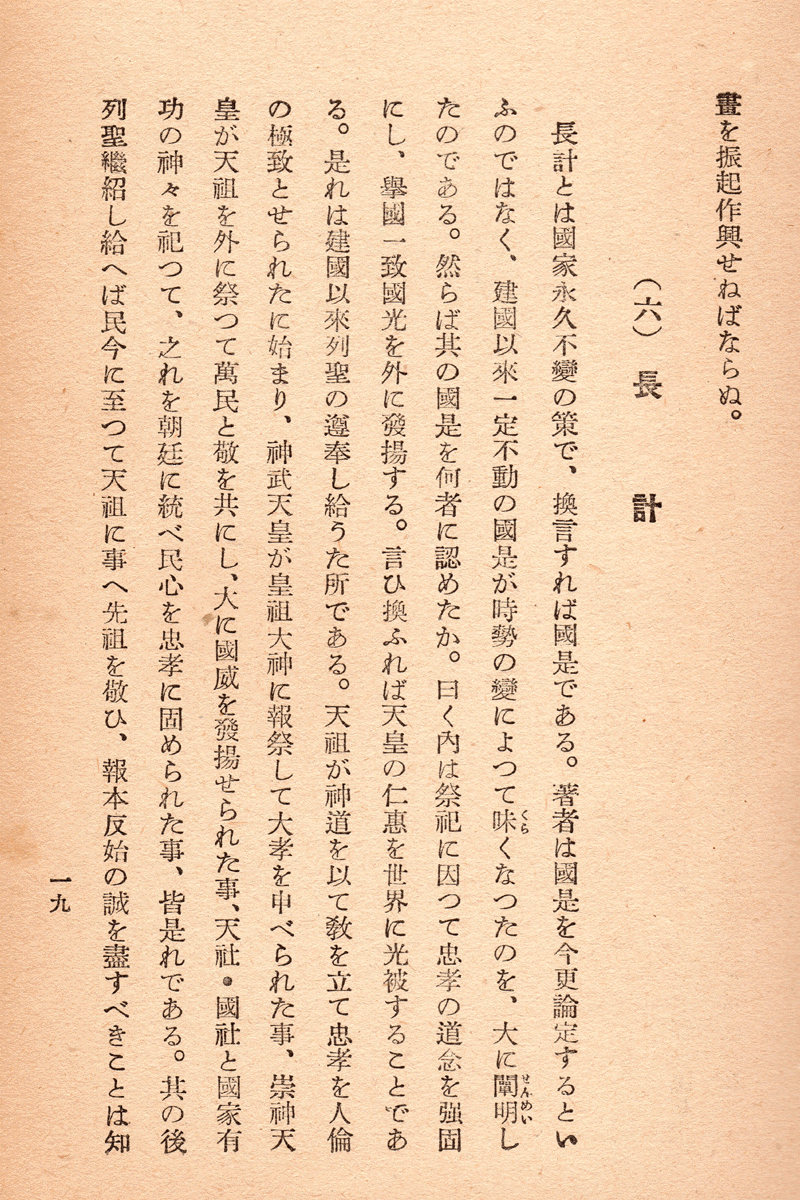 畫を振起作興せねばならぬ。
(六) 長計
長計とは國家永久不變の策で、換言すれば國是である。著者は國是を今更論定するとい
ふのではなく、建國以來一定不動の國是が時勢の變によつて昧くなつたのを、大に闡明し
くら
せんめい
たのである。然らば其の國是を何者に認めたか。曰く內は祭祀に因つて忠孝の道念を强固
にし、擧國一致國光を外に發揚する。言ひ換ふれば天皇の仁惠を世界に光被することであ
る。是れは建國以來列聖の遵奉し給うた所である。天祖が神道を以て敎を立て忠孝を人倫
の極致とせられたに始まり、神武天皇が皇祖大神に報祭して大孝を申べられた事、崇神天
皇が天祖を外に祭つて萬民と敬を共にし、大に國威を發揚せられた事、天社・國社と國家有
功の神々を祀つて、之れを朝廷に統べ民心を忠孝に固められた事、皆是れである。其の後
列聖繼紹し給へば民今に至つて天祖に事へ先祖を敬ひ、報本反始の誠を盡すべきことは知
一九